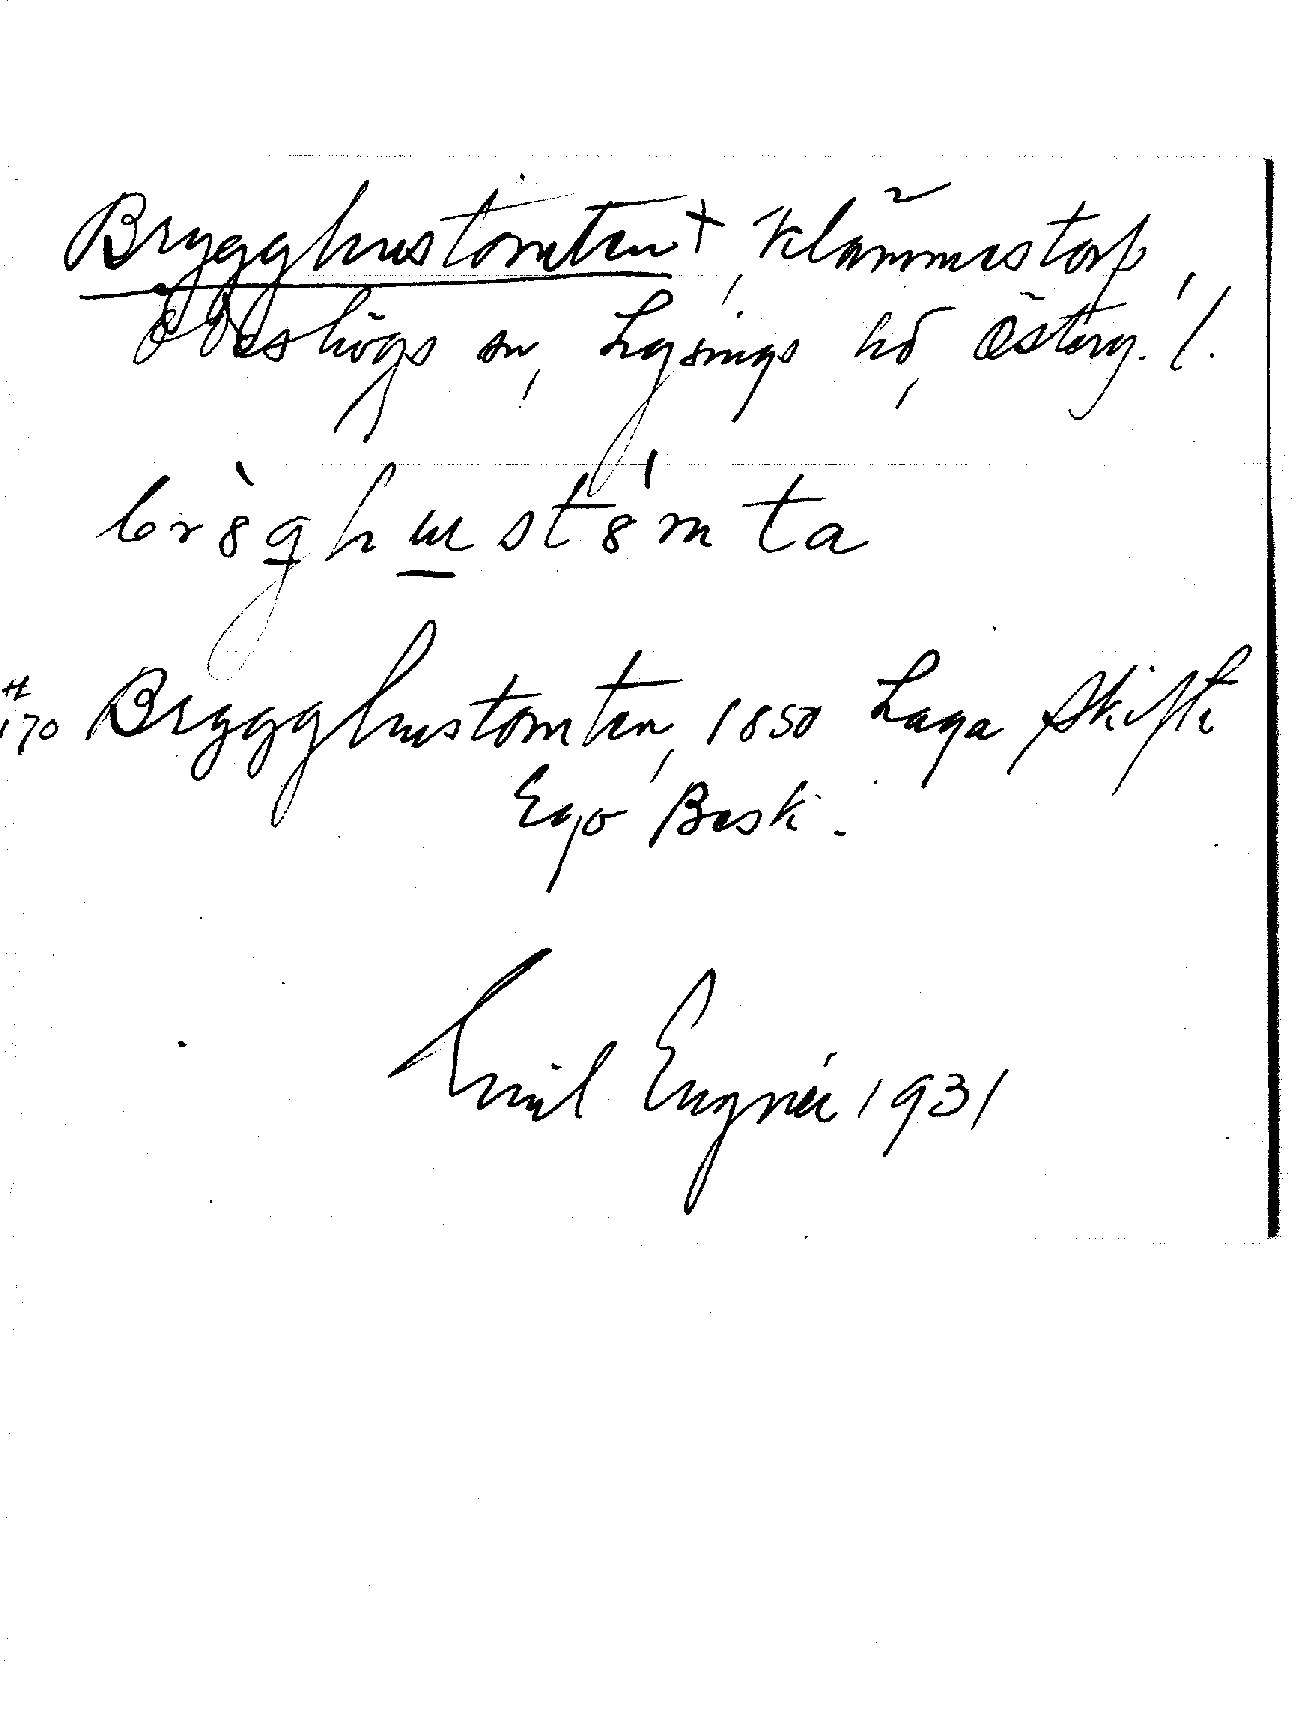 Brygghustomten +, Klämmestorp,
Ödeshögs sn, Lysings hd, Österg. l.
brö̀ghustö́mta
# 170 Brygghustomten, 1850 Laga Skifte
Ego Besk.
Emil Engnér 1931